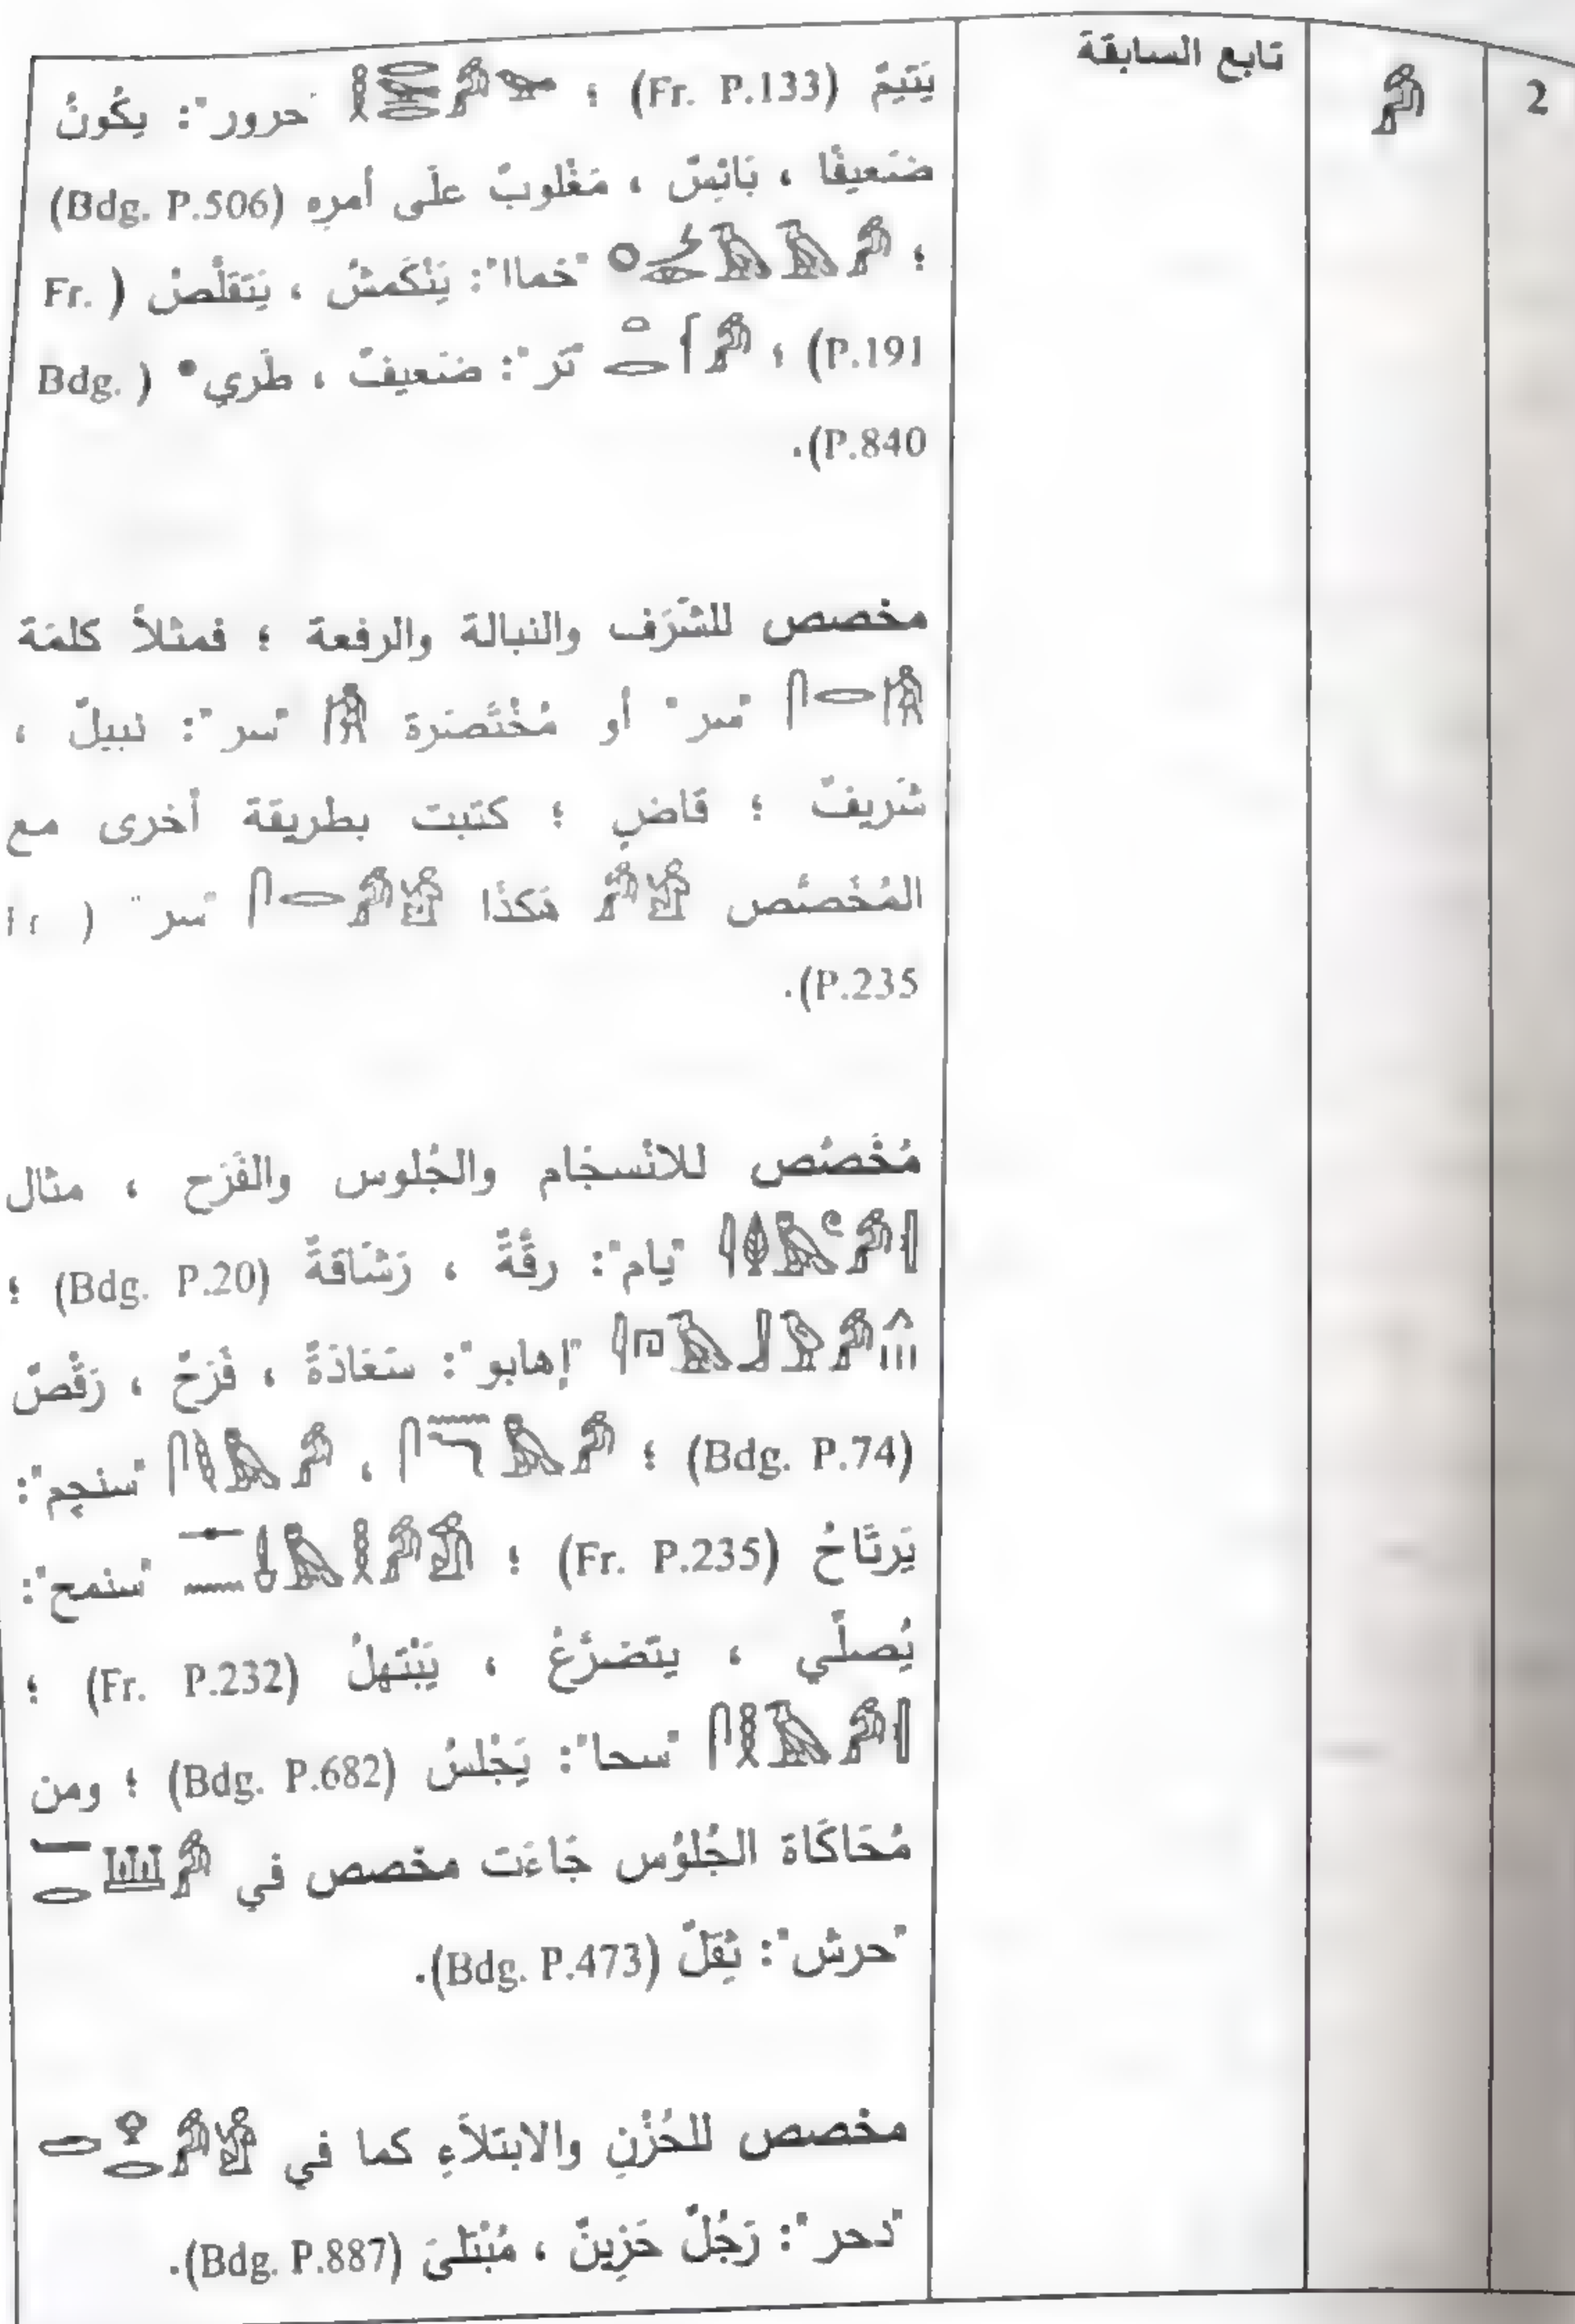 2
تابع السابقة
يَتَيِمٌ (Fr. P.133) ؛ "حرور": يكُونُ
ضَعيفًا ، بَائِسٌ ، مَغْلوبٌ علَى أمرِهِ (Bdg. P.506)
؛ "خماا": يَنْكَمشُ ، يَتَقلَّصُ (Fr.
P.191) ؛ "تَر": ضَعيفٌ ، طَري* (Bdg.
P.840).
مخصص للشَّرَف والنبالة والرفعة ؛ فمثلاً كلمَة
"سر" أو مُخْتَصَرة "سر": نبيلٌ ،
شَريفٌ ؛ قاضٍ ؛ كتبت بطريقة أخرى مع
المُخَصَّص هَكذَا "سر" (
P.235).
مُخَصَّص للانْسجَام والجُلوس والفَرَح ، مثال
"يام": رقَّةٌ ، رَشَاقَةٌ (Bdg. P.20) ؛
"إهابو": سَعَادَةٌ ، فَرَحٌ ، رَقْصٌ
(Bdg. P.74) ؛ ، "سنچم":
يَرتَاحُ (Fr. P.235) ؛ "سنمح":
يُصلّي ، يتَضرَّعُ ، يَبْتَهلُ (Fr. P.232) ؛
"سحا": يَجْلسُ (Bdg. P.682) ؛ ومن
مُحَاكَاة الجُلوُس جَاءَت مخصص في
"حرش": ثِقَلٌ (Bdg. P.473).
مخصص للحُزْنِ والابتلاَءِ كما في
"دحر": رَجُلٌ حَزِينٌ ، مُبْتَلىَ (Bdg. P.887).